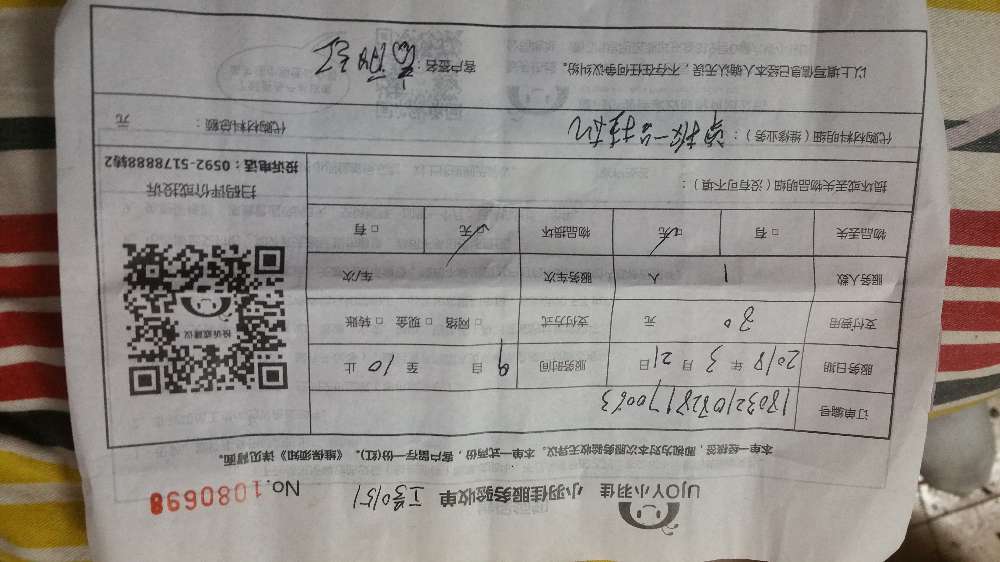 UJOY小羽佳 小羽佳服务验收单 工号0151 No.1080698
本单一经接签，即视为对本次服务验收无异议。本单一式两份，客户留存一份(红)。《维保须知》详见背面。
订单编号
服务日期 2018 年 3 月 21 日 服务时间 9 自 至 10 止
支付费用 30 元 支付方式 □网络 □现金 □转账
服务人数 1 人 服务车次 车/次
物品丢失 □有 ☑无 物品损坏 ☑无 □有
损坏或丢失物品明细（没有可不填）：
投诉或建议
扫码评价或投诉
投诉电话：0592-5178888转2
代购材料明细（维修业务）： 代购材料总额： 元
以上填写信息已经本人确认无误，不存在任何争议纠纷。 客户签名：